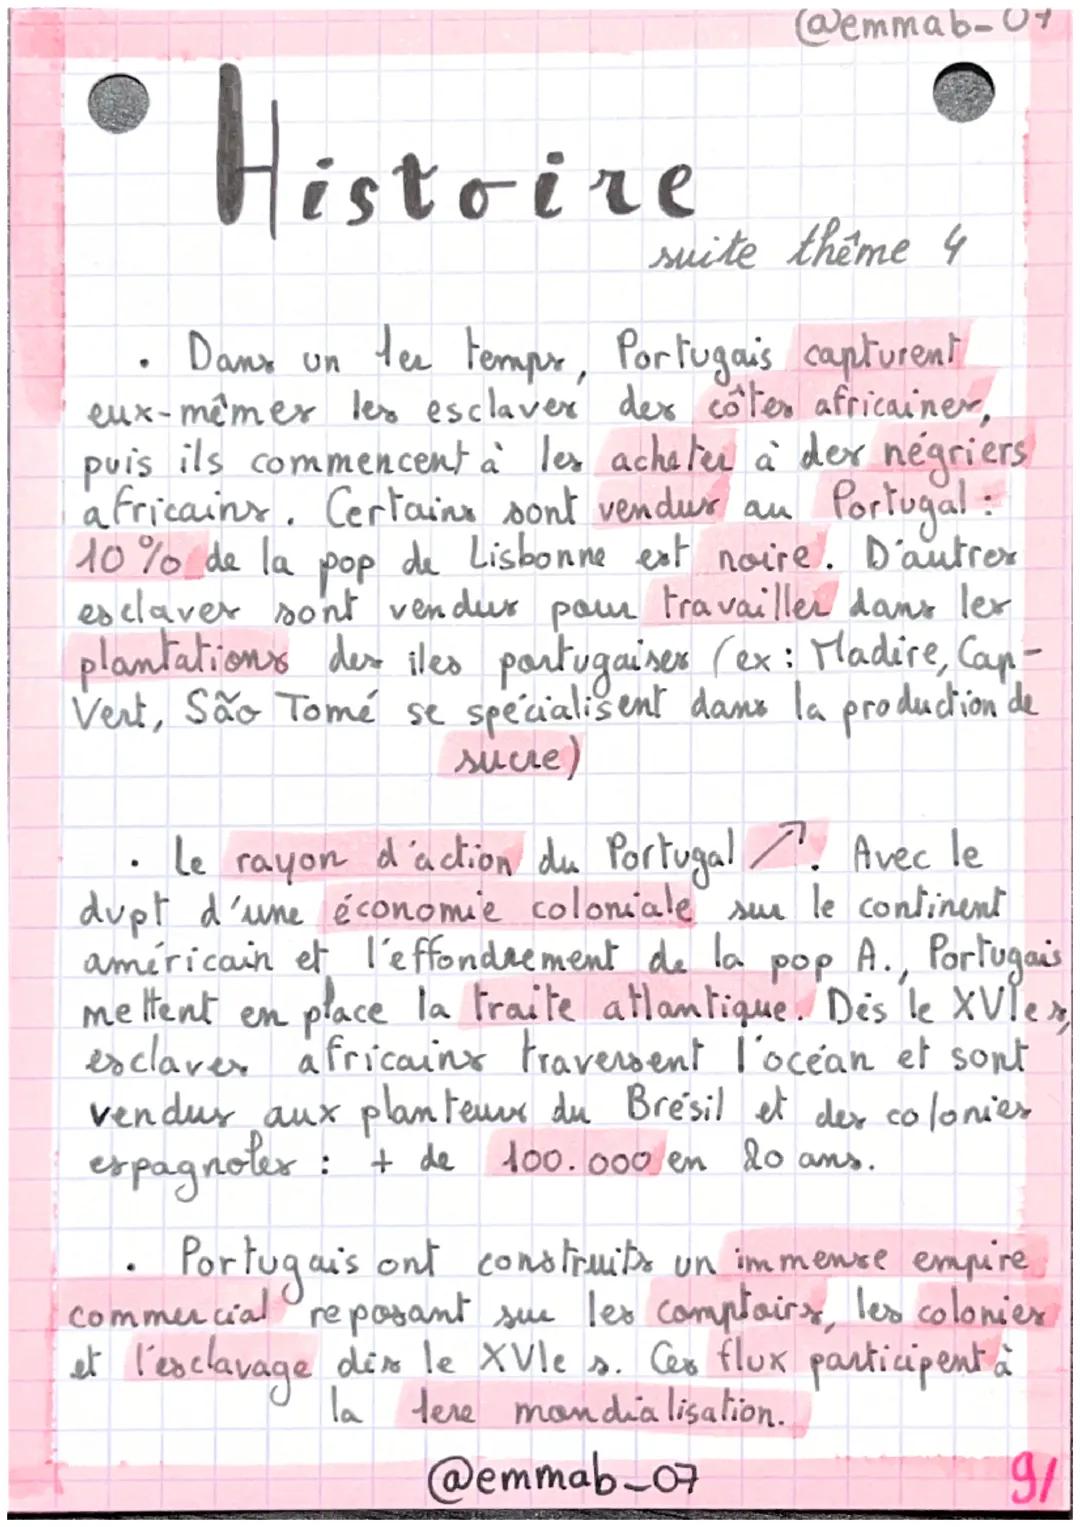 @emmab-07
Histoire
suite thême 4
• Dans un 1er temps, Portugais capturent
eux-mêmes les esclaves des côtes africaines,
puis ils commencent à les acheter à des négriers
africains. Certains sont vendus au Portugal :
10% de la pop de Lisbonne est noire. D'autres
esclaves sont vendus pour travailler dans les
plantations des iles portugaises (ex : Madère, Cap-
Vert, São Tomé se spécialisent dans la production de
sucre)
• Le rayon d'action du Portugal ↗. Avec le
dvpt d'une économie coloniale sur le continent
américain et l'effondrement de la pop A., Portugais
mettent en place la traite atlantique. Dès le XVIe s,
esclaves africains traversent l'océan et sont
vendus aux planteurs du Brésil et des colonies
espagnoles : + de 100.000 en 20 ans.
• Portugais ont construits un immense empire
commercial reposant sur les comptoirs, les colonies
et l'esclavage dès le XVIe s. Ces flux participent à
la 1ere mondialisation.
@emmab_07
9/